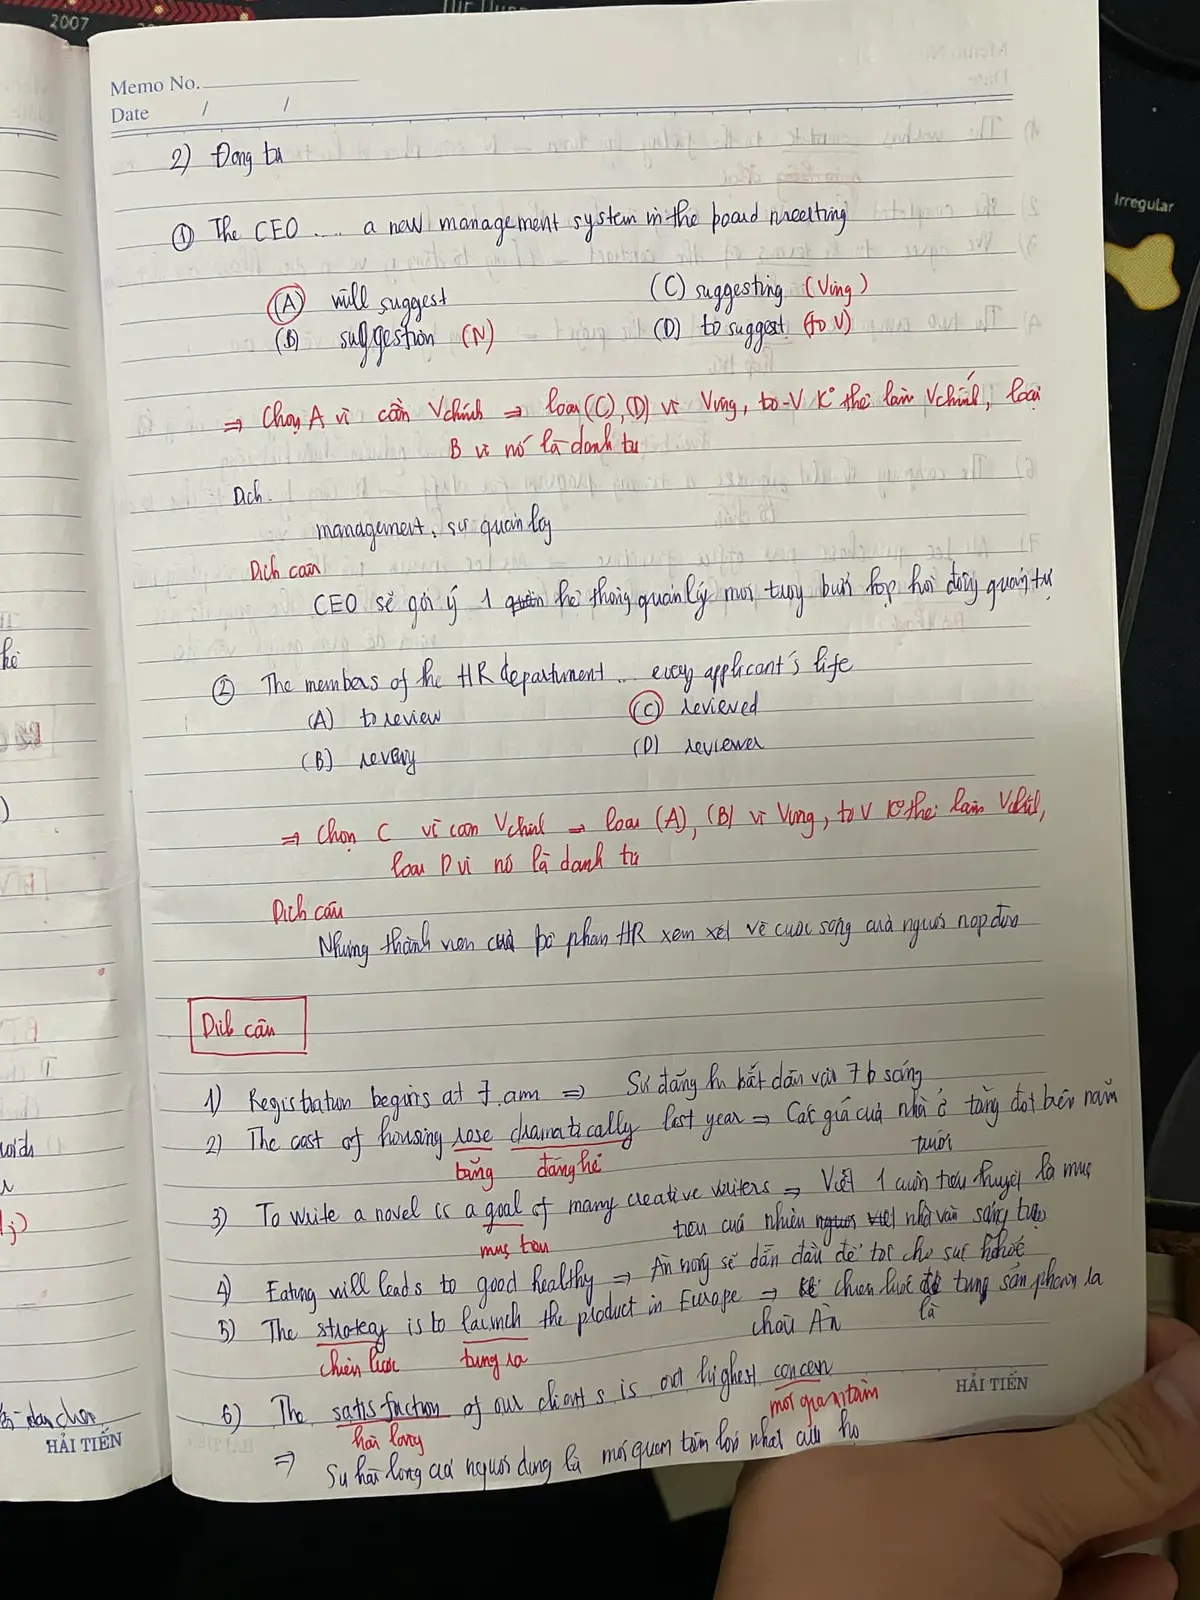 2007
Memo No.
Date / /
Irregular
2) Đong tu
① The CEO .... a new management system in the board meeting
(A) will suggest (C) suggesting (Ving)
(B) suggestion (N) (D) to suggest (to V)
⇒ Chọn A vì cần Vchính ⇒ loại (C), (D) vì Ving, to-V K° thể làm Vchính, loại
B vì nó là danh tu
Dịch.
management: sự quản lý
Dịch câu
CEO sẽ gợi ý 1 hệ thống quản lý mới trong buổi họp hội đồng quản trị
② The members of the HR department ... every applicant's life
(A) to review (C) reviewed
(B) (D) reviewer
⇒ Chọn C vì cần Vchính ⇒ loại (A), (B) vì Ving, to V K° thể làm Vchính,
loại D vì nó là danh tu
Dịch câu
Những thành viên của bộ phận HR xem xét về cuộc sống của người nộp đơn
Dịch câu
1) Registration begins at 7 am ⇒ Sự đăng ký bắt đầu vào 7h sáng
2) The cost of housing rose dramatically last year ⇒ Các giá của nhà ở tăng đột biến năm
trước
tăng đáng kể
3) To write a novel is a goal of many creative writers ⇒ Viết 1 cuốn tiểu thuyết là mục
tiêu của nhiều nhà văn sáng tạo
mục tiêu
4) Eating will leads to good healthy ⇒ Ăn uống sẽ dẫn đầu để tốt cho sức khỏe
5) The strategy is to launch the product in Europe ⇒ chiến lược để tung sản phẩm ra
châu Âu là
chiến lược tung ra
6) The satisfaction of our clients is our highest concern
hài lòng mối quan tâm
⇒ Sự hài lòng của người dùng là mối quan tâm lớn nhất của họ
HẢI TIẾN
HẢI TIẾN